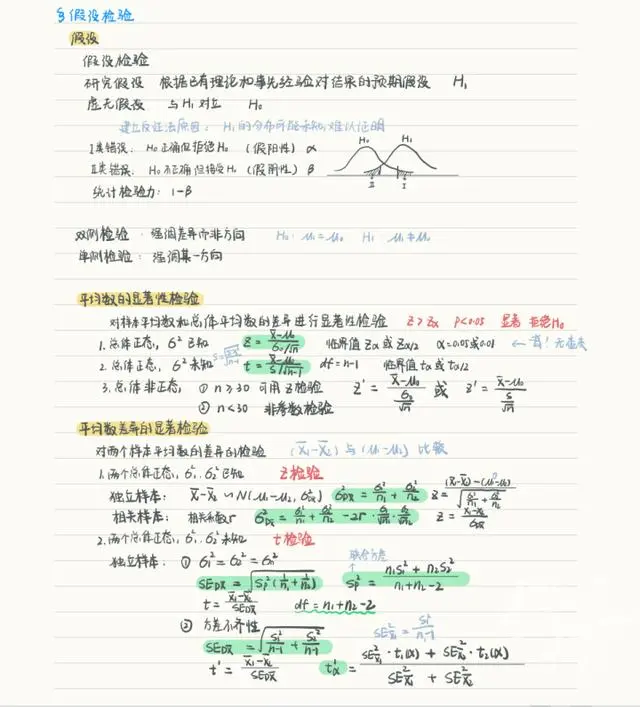 § 假设检验
假设
假设检验
研究假设 根据已有理论和事先经验对结果的预期假设 H₁
虚无假设 与H₁对立 H₀
建立反证法原因：H₁的分布可能未知，难以证明
I类错误：H₀正确但拒绝H₀（假阳性）α
II类错误：H₀不正确但接受H₀（假阴性）β
H₀ H₁
II I
统计检验力：1-β
双侧检验：强调差异而非方向 H₀：μ₁=μ₀ H₁：μ₁≠μ₀
单侧检验：强调某一方向
平均数的显著性检验
对样本平均数和总体平均数的差异进行显著性检验 Z>Zα P<0.05 显著 拒绝H₀
1.总体正态，σ²已知 Z=(X̄-μ₀)/(σ₀/√n) 临界值 Zα 或 Zα/2 α=0.05或0.01
2.总体正态，σ²未知 t=(X̄-μ₀)/(S/√n-1) df=n-1 临界值 tα 或 tα/2
3.总体非正态，① n≥30 可用Z检验 Z'=(X̄-μ₀)/(σ₀/√n) 或 Z'=(X̄-μ₀)/(S/√n)
② n<30 非参数检验
平均数差异的显著检验
对两个样本平均数的差异的检验 (X̄₁-X̄₂)与(μ₁-μ₂)比较
1.两个总体正态，σ₁²，σ₂²已知 Z检验
独立样本：X̄₁-X̄₂ ∽ N(μ₁-μ₂, σ²DX̄) σ²DX̄=σ₁²/n₁+σ₂²/n₂ Z=((X̄₁-X̄₂)-(μ₁-μ₂))/√(σ₁²/n₁+σ₂²/n₂)
相关样本：相关系数r σ²DX̄=σ₁²/n₁+σ₂²/n₂-2r·σ₁/√n₁·σ₂/√n₂ Z=(X̄₁-X̄₂)/σDX̄
2.两个总体正态，σ₁²，σ₂²未知 t检验
独立样本：① σ₁²=σ₂²=σ₀²
联合方差
SEDX̄=√(Sp²(1/n₁+1/n₂)) Sp²=(n₁S₁²+n₂S₂²)/(n₁+n₂-2)
t=(X̄₁-X̄₂)/SEDX̄ df=n₁+n₂-2
② 方差不齐性 SE²X̄₁=S₁²/(n₁-1)
SEDX̄=√(S₁²/(n₁-1)+S₂²/(n₂-1))
t'=(X̄₁-X̄₂)/SEDX̄ t'α=(SE²X̄₁·t₁(α)+SE²X̄₂·t₂(α))/(SE²X̄₁+SE²X̄₂)